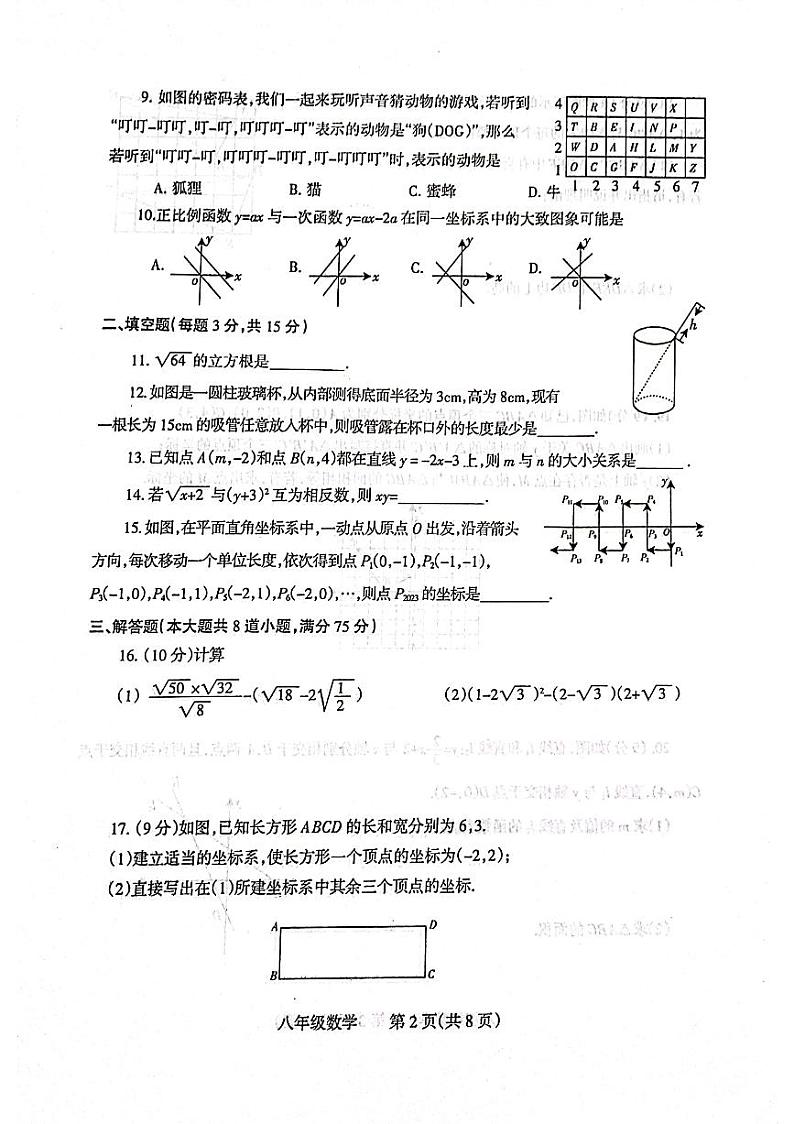 9. 如图的密码表,我们一起来玩听声音猜动物的游戏,若听到
“叮叮-叮叮,叮-叮,叮叮叮-叮”表示的动物是“狗(DOG)”,那么
若听到“叮叮-叮,叮叮叮-叮叮,叮-叮叮叮”时,表示的动物是
A. 狐狸 B. 猫 C. 蜜蜂 D. 牛
4 Q R S U V X
3 T B E I N P
2 W D A H L M Y
1 O C G F J K Z
1 2 3 4 5 6 7
10.正比例函数y=ax与一次函数y=ax-2a在同一坐标系中的大致图象可能是
A. y O x B. y O x C. y O x D. y O x
二、填空题(每题3分,共15分)
11. √64 的立方根是________.
12.如图是一圆柱玻璃杯,从内部测得底面半径为3cm,高为8cm,现有
一根长为15cm的吸管任意放入杯中,则吸管露在杯口外的长度最少是________.
h
13.已知点A(m,-2)和点B(n,4)都在直线y=-2x-3上,则m与n的大小关系是______.
14.若√x+2与(y+3)²互为相反数,则xy=__________.
15.如图,在平面直角坐标系中,一动点从原点O出发,沿着箭头
方向,每次移动一个单位长度,依次得到点P₁(0,-1),P₂(-1,-1),
P₃(-1,0),P₄(-1,1),P₅(-2,1),P₆(-2,0),…,则点P₂₀₂₃的坐标是________.
y
P₁₁ P₁₀ P₅ P₄
P₁₂ P₉ P₆ P₃ O x
P₁₃ P₈ P₇ P₂ P₁
三、解答题(本大题共8道小题,满分75分)
16. (10分)计算
(1) √50×√32/√8-(√18-2√1/2) (2)(1-2√3)²-(2-√3)(2+√3)
17. (9分)如图,已知长方形ABCD的长和宽分别为6,3.
(1)建立适当的坐标系,使长方形一个顶点的坐标为(-2,2);
(2)直接写出在(1)所建坐标系中其余三个顶点的坐标.
A D
B C
八年级数学 第2页(共8页)